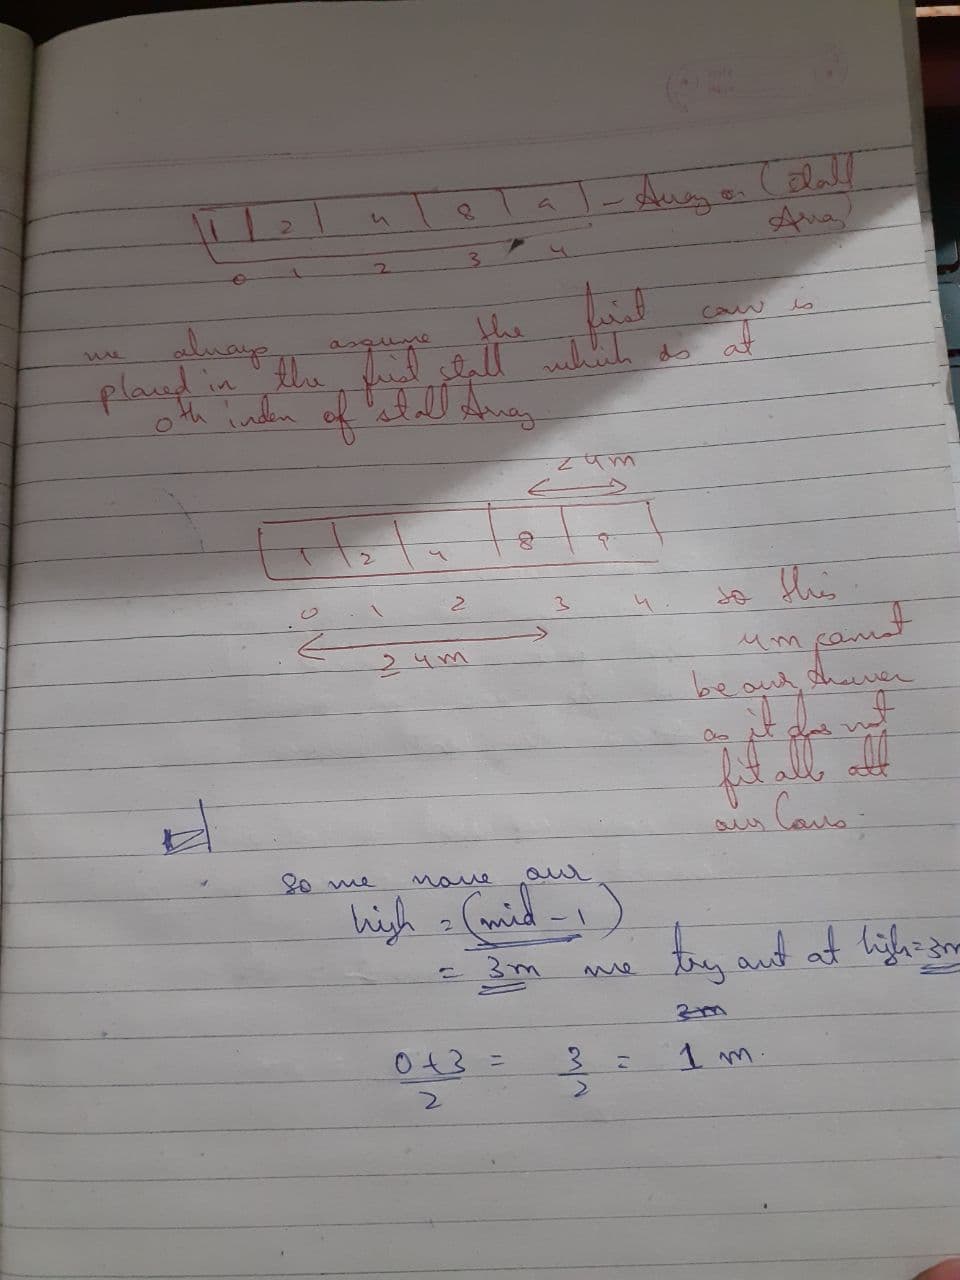 1 2 4 8 9 - Array on (stall
Array)
0 1 2 3 4
we always assume the first cow is
placed in the first stall which is at
0th index of stall Array
< 4m
1 2 4 8 9
0 1 2 3 4
≥ 4m
so this
4m cannot
be our Answer
as it does not
fit all all
our Cows.
So we move our
high = (mid - 1)
= 3m we try out at high = 3m
0+3 = 3 = 1 m.
2 2